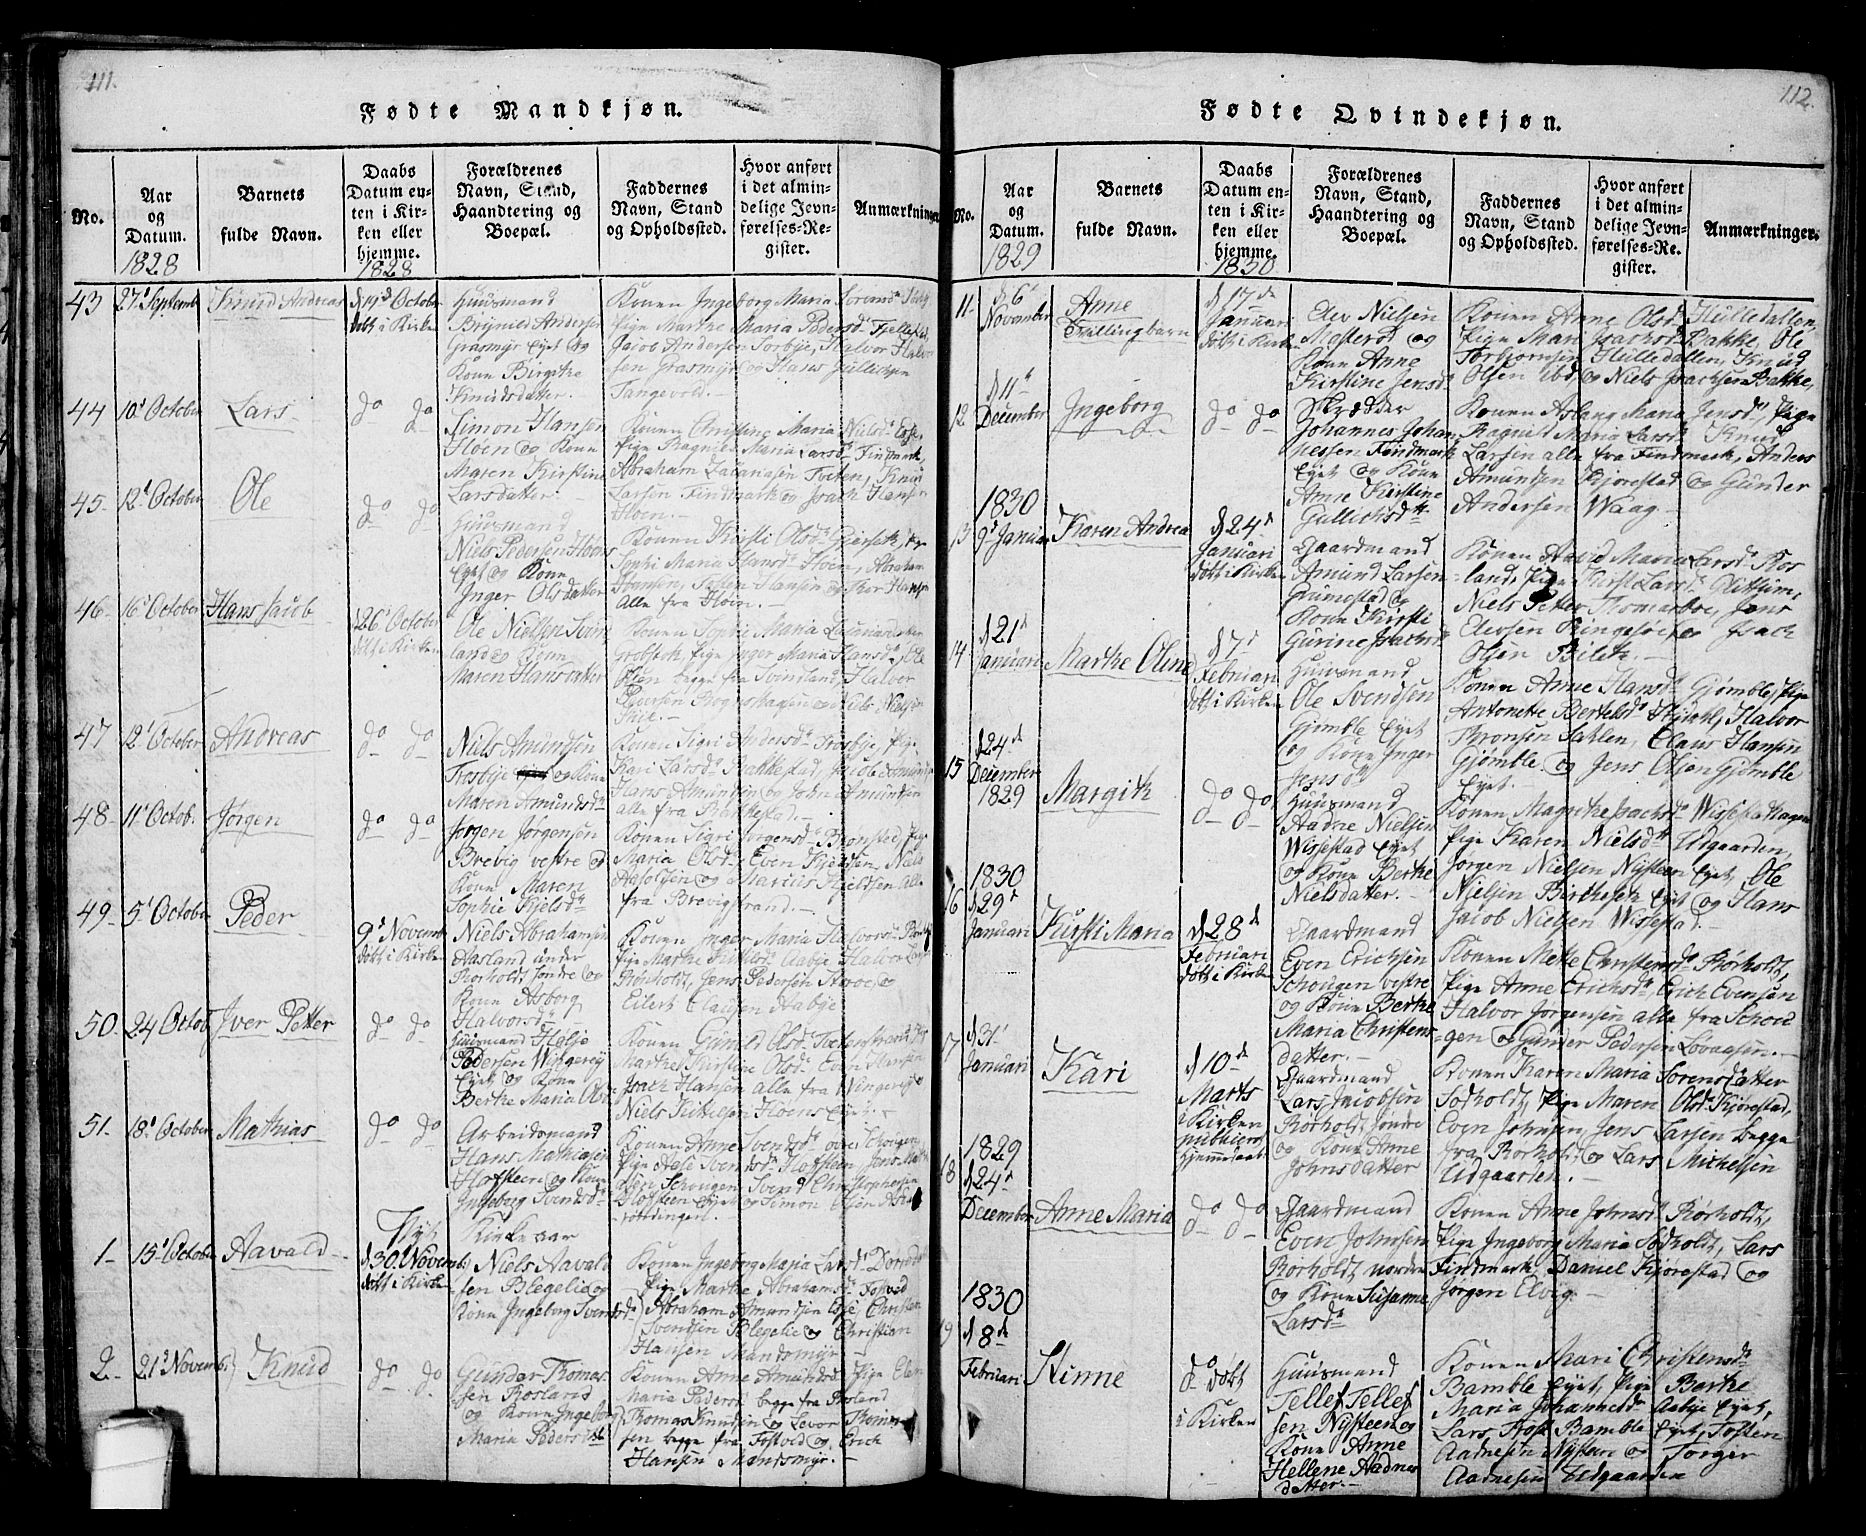 111.
Fødte Mandkjøn.
No.
Aar og Datum.
1828
Barnets fulde Navn.
Daabs Datum enten i Kirken eller hjemme.
1828
Forældrenes Navn, Stand, Haandtering og Boepæl.
Faddernes Navn, Stand og Opholdssted.
Hvor anført i det almindelige Jevnførelses-Register.
Anmærkninger
43
27d Septemb
Knud Andreas
d 19d October
døbt i Kirke
Huusmand
Brynild Andersen
Grasmyr Eyet og
Kone Birgithe
Knudsdatter.
Konen Ingeborg Maria Sorensd
Pige Marthe Maria Pedersd
Jacob Andersen Sorbye, Halvor Halvor
sen Grasmyr og Hans Gullichsen
Tangevold.
44
10d October
Lars
do do
Simon Hansen
Høen og Kone
Maren Kirstine
Larsdatter.
Konen Christine Maria Nielsd
Pige Ragnild Maria Larsd Findmark,
Abraham Zacariasen Tveten, Knud
Larsen Findmark og Isach Hansen
Høen.
45
12d October
Ole
do do
Huusmand
Niels Pedersen Høens
Eyet og Kone
Inger Olsdatter
Konen Kirsti Olsd
Sophi Maria Hansd Høen, Abraham
alle fra Høen.
46
16d October
Hans Jacob
26d October
døbt i Kirken
Ole Nielsen Svin
land og Kone
Maren Hansdatter
Konen Sophie Maria
Pige Inger Maria Hansd Ole
Olsen begge fra Svinland, Halvor
Pedersen Rognshagen og Niels Nielsen
47
12d October
Andreas
do do
Niels Amundsen
Trosbye og Kone
Maren Amundsd
Konen Sigri Andersd Trosbye, Pige
Kari Larsd Bakkestad, Jacob Amunds
Hans Amundsen og John Amundsen
alle fra Bakkestad.
48
11d Octob.
Jørgen
do do
Jørgen Jørgensen
Brevig vestre og
Kone Maren
Sophie Kjelsd
Konen Sigri Jorgensd Brønstad, Pige
Maria Olsd, Even Kjeldsen, Niels
og Marius Kjeldsen alle
fra Brevigstrand.
49
5d October
Peder
9d Novemb
døbt i Kirke
Niels Abrahamsen
Aasland under
Rørholt søndre og
Kone Asborg
Halvorsd
Konen Inger Maria Halvorsd
Pige Marthe Aabye Halvor
Rørholt, Jens Pedersen og
Eilert Clausen Aabye
50
24 Octob
Iver Petter
do do
Huusmand Helje
Pedersen Wingerey
Eyet og Kone
Berthe Maria Olsd
Konen Gunild Olsd
Marthe Kirstine Olsd Even Hansen
Isach Hansen alle fra Wingereye
Niels Kittilsen Høens Eyet.
51
18d October
Mathias
do do
Arbeidsmand
Hans Mathiasen
Hofsteen og Kone
Ingeborg Svendsd
Konen Anne Svendsd ovre Schougen
Pige Aase Svendsd Hofsteen Jens
Schougen Svend Christophersen
Hofsteen Eyet og Simon Olsen
Nyt Kirkeaar
1
15d October
Aavald
d 30d Novemb
døbt i Kirke
Niels Aavald
sen Blegelie og
Kone Ingeborg Svendsd
Konen Ingeborg Maria Larsd
Pige Marthe Abrahamsd Fosvold
Abraham Amundsen Christen
Svendsen Blegelie og Christian
Hansen Mandsmyr
2
21d Novemb
Knud
do do
Gunder Thomas
sen Rosland
og Kone Ingeborg
Maria Pedersdtr
Konen Anne Amundsd Pige
Maria Pedersd begge fra Rosland
Thomas Knudsen og Levor Thomas
sen begge fra Fosvold og Erich
Hansen Mandsmyr.
112.
Fødte Qvindekjøn.
No.
Aar og Datum.
1829
Barnets fulde Navn.
Daabs Datum enten i Kirken eller hjemme.
1830
Forældrenes Navn, Stand, Haandtering og Boepæl.
Faddernes Navn, Stand og Opholdssted.
Hvor anført i det almindelige Jevnførelses-Register.
Anmærkninger.
11
d 6d
November
Anne
Tvillingbarn
d 17de
Januari
døbt i Kirke
Elev Nielsen
Mosterød og
Kone Anne
Kirstine Jensd
Konen Anne Olsd Hulledallen,
Pige Mari Isachsd Bakke, Ole
Torbjornsen Hulledallen, Knud
Olsen ibd og Niels Isachsen Bakke,
12
d 11d
December
Ingeborg
do do
Skrædder
Johannes Johan
nessen Findmark
Eyet og Kone
Anne Kirstine
Gullichsd
Konen Aslaug Maria Jensd, Pige
Ragnild Maria Larsd Knud
Larsen alle fra Findmark, Anders
Amundsen Kjørestad og Gunder
Andersen Waag
13
1830
9d Januar
Karen Andrea
d 24d
Januari
døbt i Kirken
Gaardmand
Amund Larsen
Grimestad og
Kone Kirsti
Gurine Isachsd
Konen Maria Larsd Ros
land, Pige Kirsti Larsd
Niels Petter Jens
Elevsen Ringesøe og Isach
Olsen
14
d 21d
Januari
Marthe Oline
d 7d
Februari
døbt i Kirken
Huusmand
Ole Svendsen
Gjømble Eyet
og Kone Inger
Jensd
Konen Anne Hansd Gjømble, Pige
Antonette Bertelsd Halvor
Thronsen Sahlen, Claus Hansen
Gjømble og Jens Olsen Gjømble
Eyet.
15
d 24d
December
1829
Margith
do do
Huusmand
Aadne Nielsen
Wissestad Eyet
og Kone Berthe
Nielsdatter.
Konen Magrithe Isachsd Wissestadhagen
Pige Karen Nielsd Udgaarden,
Jorgen Nielsen Nysteen Eyet, Ole
Nielsen Eyet og Hans
Jacob Nielsen Wissestad.
16
1830
d 29d
Januari
Kirsti Maria
d 28d
Februari
døbt i Kirken
Gaardmand
Even Erichsen
Schougen vestre
og Kone Berthe
Maria Christens
datter.
Konen Mette Christensd Rørholt,
Pige Anne Erichsd, Erich Evensen
Halvor Jorgensen alle fra Schou
gen og Gunder Pedersen Løvaasen.
17
d 31d
Januari
Kari
d 10de
Marts
i Kirken
publiceret
Hjemmedaab
Gaardmand
Lars Jacobsen
Rørholt søndre
og Kone Anne
Johnsdatter
Konen Karen Maria Sorensdatter
Sodholt, Pige Maren Olsd Kjørestad,
Even Johnsen, Jens Larsen begge
fra Rørholt og Lars Michelsen
Udgaarden.
18
1829
d 24d
December
Anne Maria
do do
Gaardmand
Even Johnsen
Rørholt norden
og Kone Susanne
Larsd
Konen Anne Johnsd Rørholt,
Pige Ingeborg Maria Sodholt, Lars
Findmark, Daniel Kjørestad og
Jørgen Elvig.
19
1830
d 8de
Februari
Stinne
do døbt
i Kirken
Huusmand
Tellef Tellef
sen Nysteen og
Kone Anne
Hellene Aadnes
datter.
Konen Mari Christensd
Bamble Eyet, Pige Berthe
Maria Johannesd Aabye Eyet,
Lars Bamble Eyet, Tosten
Aadnesen Nysteen og Torger
Aadnesen Udgaarden